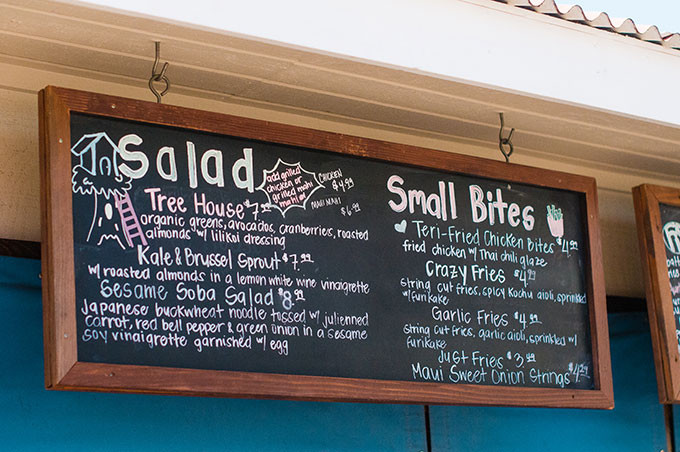 Salad
add grilled
chicken or
grilled mahi
mahi
CHICKEN
$4.99
MAHI MAHI
$6.99
Tree House $7.99
organic greens, avocados, cranberries, roasted
almonds w/ lilikoi dressing
Kale & Brussel Sprout $7.99
w/ roasted almonds in a lemon white wine vinaigrette
Sesame Soba Salad $8.99
Japanese buckwheat noodle tossed w/ julienned
carrot, red bell pepper & green onion in a sesame
soy vinaigrette garnished w/ egg
Small Bites
Teri-Fried Chicken Bites $4.99
fried chicken w/ Thai chili glaze
Crazy Fries $4.99
string cut fries, spicy Kochu aioli, sprinkled
w/ furikake
Garlic Fries $4.99
string cut fries, garlic aioli, sprinkled w/
furikake
Just Fries $3.99
Maui Sweet Onion Strings $4.99